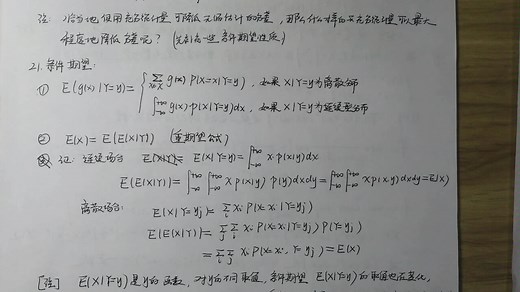 注: 恰当地使用充分统计量可降低无偏估计的方差, 那么什么样的充分统计量可以最大
程度地降低方差呢? (先引入一些条件期望性质)
21. 条件期望:
① E(g(x)|Y=y) = { ∑_{x∈X} g(x) P(X=x|Y=y), 如果 X|Y=y 为离散分布
∫_{-∞}^{+∞} g(x) p(x|Y=y)dx, 如果 X|Y=y 为连续型分布
② E(X) = E(E(X|Y)) (重期望公式)
证: 连续场合 E(X|Y=y) = ∫_{-∞}^{+∞} x p(x|y)dx
E(E(X|Y)) = ∫_{-∞}^{+∞} ∫_{-∞}^{+∞} x p(x|y) p(y)dxdy = ∫_{-∞}^{+∞} ∫_{-∞}^{+∞} x p(x,y)dxdy = E(X)
离散场合: E(X|Y=y_j) = ∑_i x_i P(X=x_i|Y=y_j)
E(E(X|Y)) = ∑_j ∑_i x_i P(X=x_i|Y=y_j) P(Y=y_j)
= ∑_i ∑_j x_i P(X=x_i, Y=y_j) = E(X)
[注] E(X|Y=y) 是 y 的函数, 对 y 的不同取值, 条件期望 E(X|Y=y) 的取值也在变化,